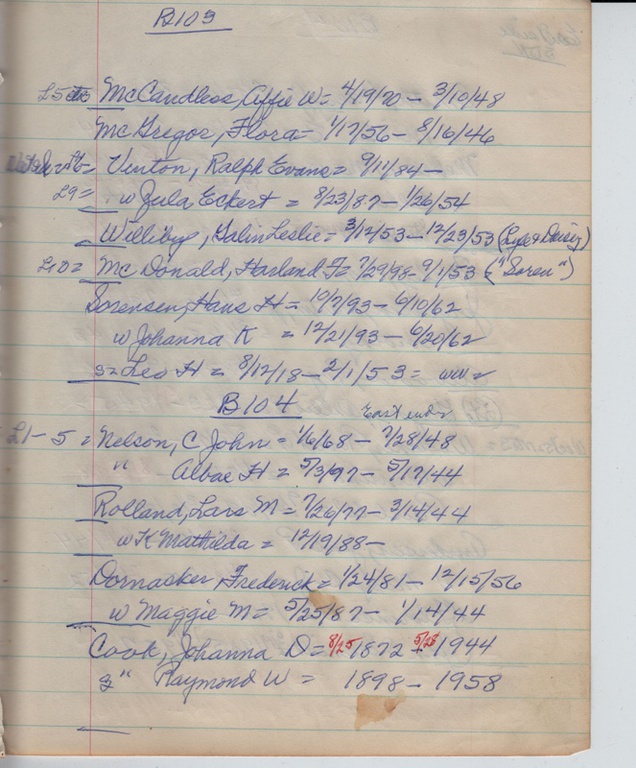 B103
L5 McCandless, Affie W = 4/19/70 – 3/10/48
McGregor, Flora = 1/17/56 – 8/16/46
Vinton, Ralph Evans = 9/11/84 –
L9 = w Zula Eckert = 8/23/87 – 1/26/54
Williby, Galin Leslie = 3/12/53 – 12/23/53 (Lyle & Daisy)
L10 = McDonald, Harland F = 7/29/98 – 9/1/53 ("Soren")
Sorensen, Hans H = 10/7/93 – 6/10/62
w Johanna K = 12/21/93 – 6/20/62
s = Leo H = 8/12/18 – 2/1/53 = WW =
B104 East ends
L1 – 5 = Nelson, C John = 1/6/68 – 7/28/48
" Albae H = 5/3/97 – 5/17/44
Rolland, Lars M = 7/26/77 – 3/14/44
w K Mathilda = 12/19/88 –
Dornasker, Frederick = 1/24/81 – 12/15/56
w Maggie M = 5/25/87 – 1/14/44
Cook, Johanna D = 8/25 1872 – 5/28 1944
" Raymond W = 1898 – 1958